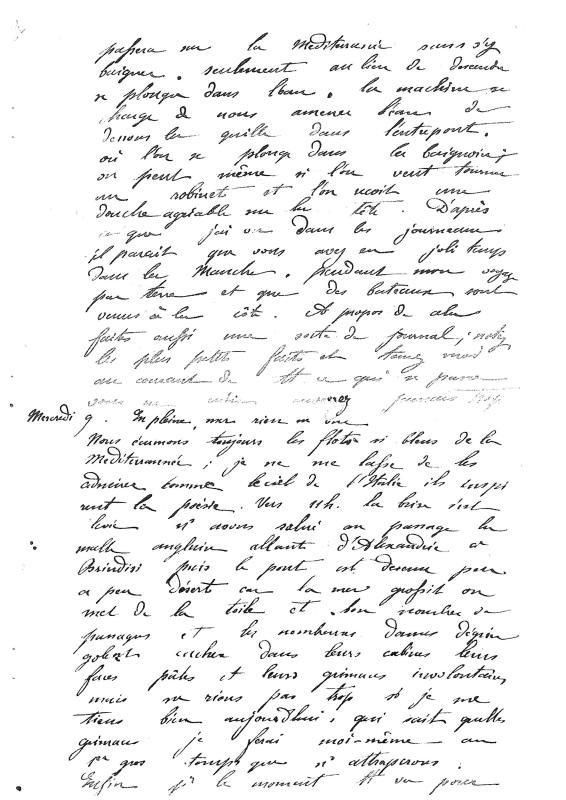 passera sur la Méditerranée sans s'y
baigner. seulement au lieu de descendre
se plonger dans l'eau. la machine se
charge de nous amener l'eau de
dessous la quille dans l'entrepont.
où l'on se plonge dans la baignoire;
on peut même si l'on veut tourner
un robinet et l'on reçoit une
douche agréable sur la tête. D'après
que j'ai vu dans les journeaux
il parait que vous avez eu joli temps
dans la Manche. pendant mon voyage
par terre et que des bateaux sont
venus à la côte. A propos de cela
faites aussi une sorte de journal; notez
les plus petits faits et tenez moi
au courant de tt ce qui se passe
jamais trop
Mercredi 9. En pleine mer rien en vue
Nous écumons toujours les flots si bleus de la
Méditerrannée; je ne me lasse de les
admirer comme le ciel de l'Italie ils inspi
rent la poésie. Vers 11h. la brise s'est
levée ns avons salué au passage la
malle anglaise allant d'Alexandrie à
Brindisi puis le pont est devenu peu
a peu désert car la mer grossit on
met de la toile et bon nombre de
passagers et les nombreuses dames dégrin
golent cacher dans leurs cabines leurs
faces pâles et leurs grimaces involontaires
mais ne rions pas trop si je me
tiens bien aujourd'hui; qui sait quelles
grimaces je ferai moi-même au
1er gros temps que ns attraperons.
Enfin pr le moment tt va pour